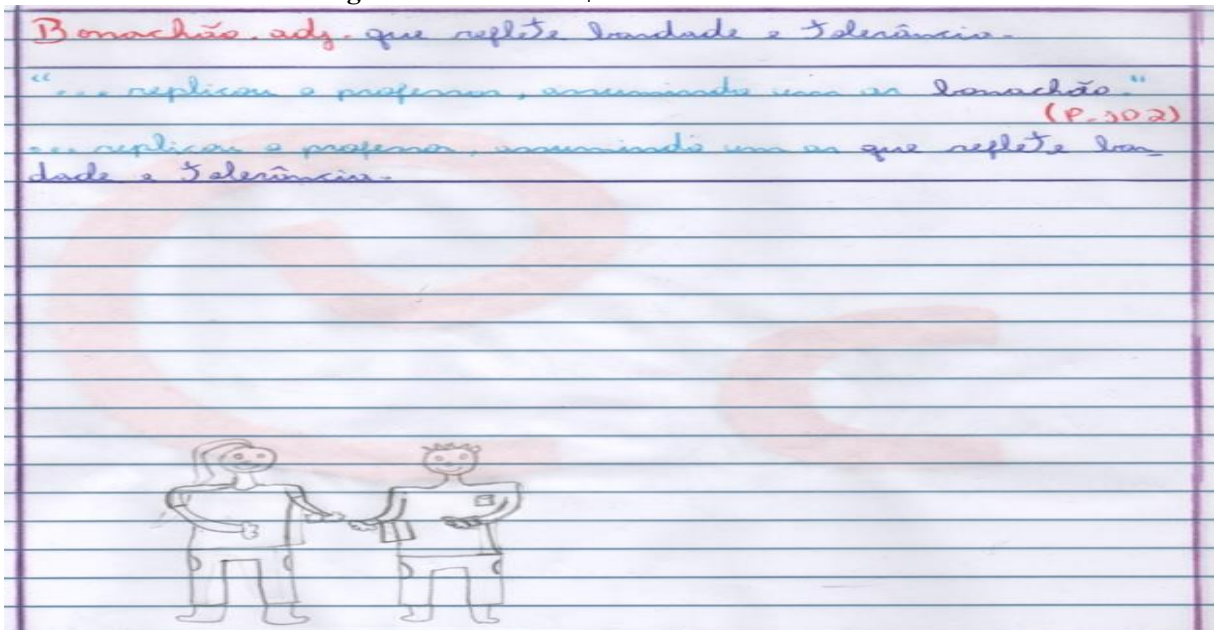 Bonachão. adj. que reflete bondade e tolerância.
"... replicou o professor, assumindo um ar bonachão."
(P. 102)
... replicou o professor, assumindo um ar que reflete bon_
dade e tolerância.